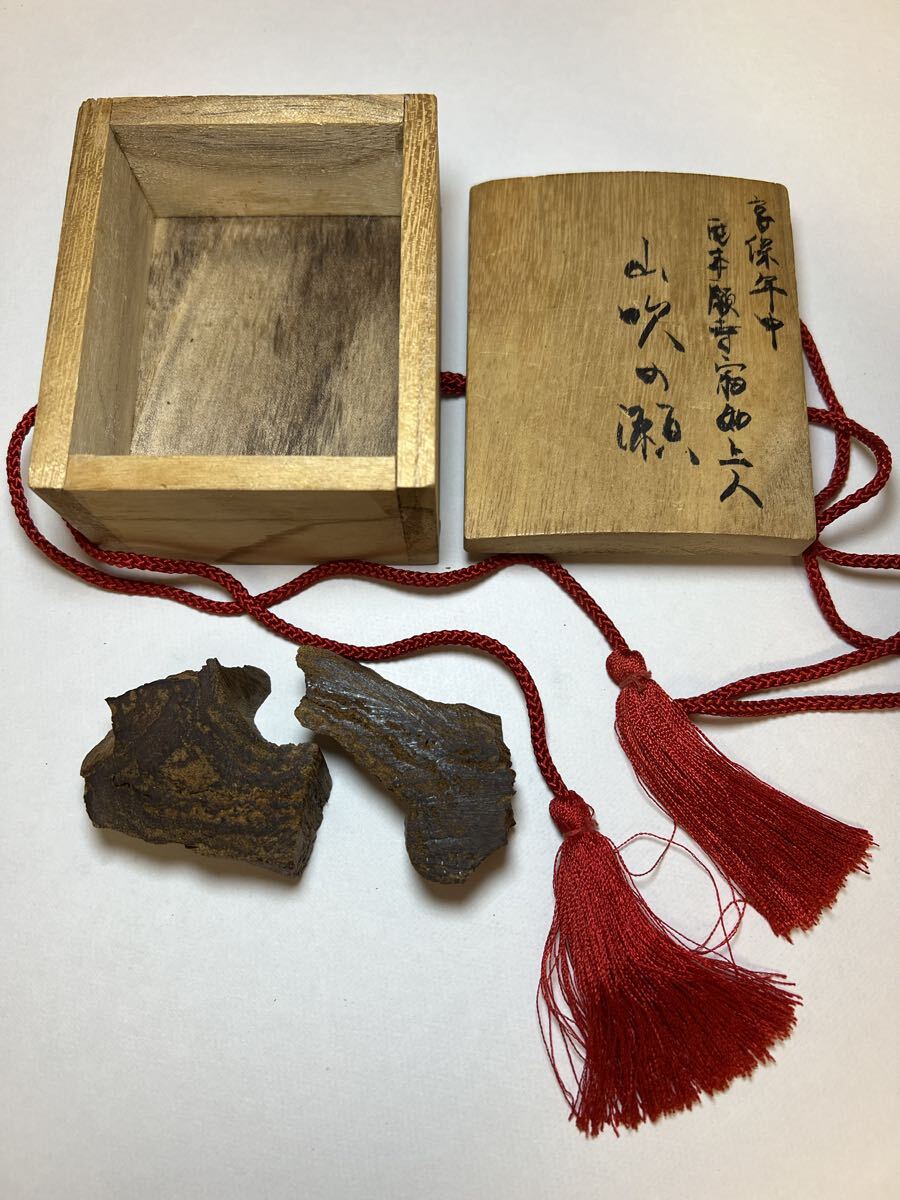 享保年中
西本願寺寂如上人
山吹の瀬